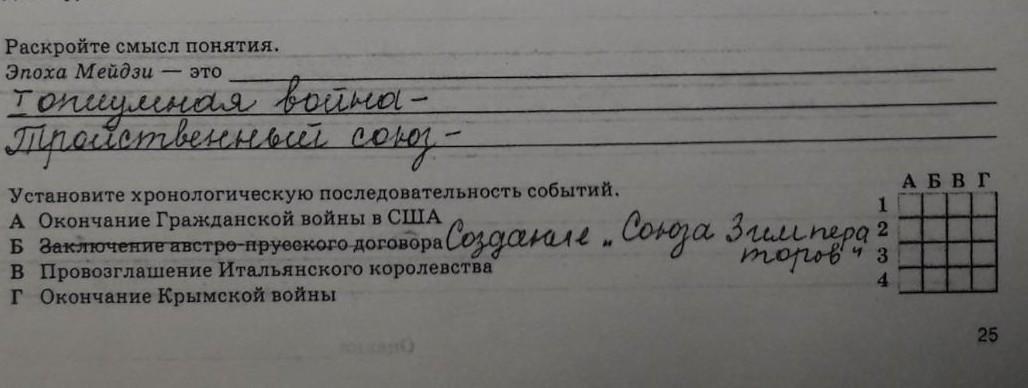 Раскройте смысл понятия.
Эпоха Мейдзи — это
I опиумная война -
Тройственный союз -
Установите хронологическую последовательность событий.
А Б В Г
А Окончание Гражданской войны в США
1
Б Заключение австро-прусского договора Создание „Союза 3 импера
2
торов"
3
В Провозглашение Итальянского королевства
4
Г Окончание Крымской войны
25